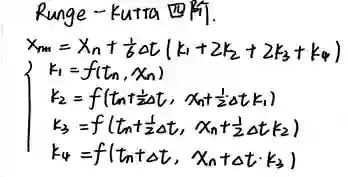 Runge-Kutta 四阶.
Xₙ₊₁ = Xₙ + 1/6 Δt (k₁ + 2k₂ + 2k₃ + k₄)
k₁ = f(tₙ, xₙ)
k₂ = f(tₙ+½Δt, xₙ+½Δt k₁)
k₃ = f(tₙ+½Δt, xₙ+½Δt k₂)
k₄ = f(tₙ+Δt, xₙ+Δt·k₃)